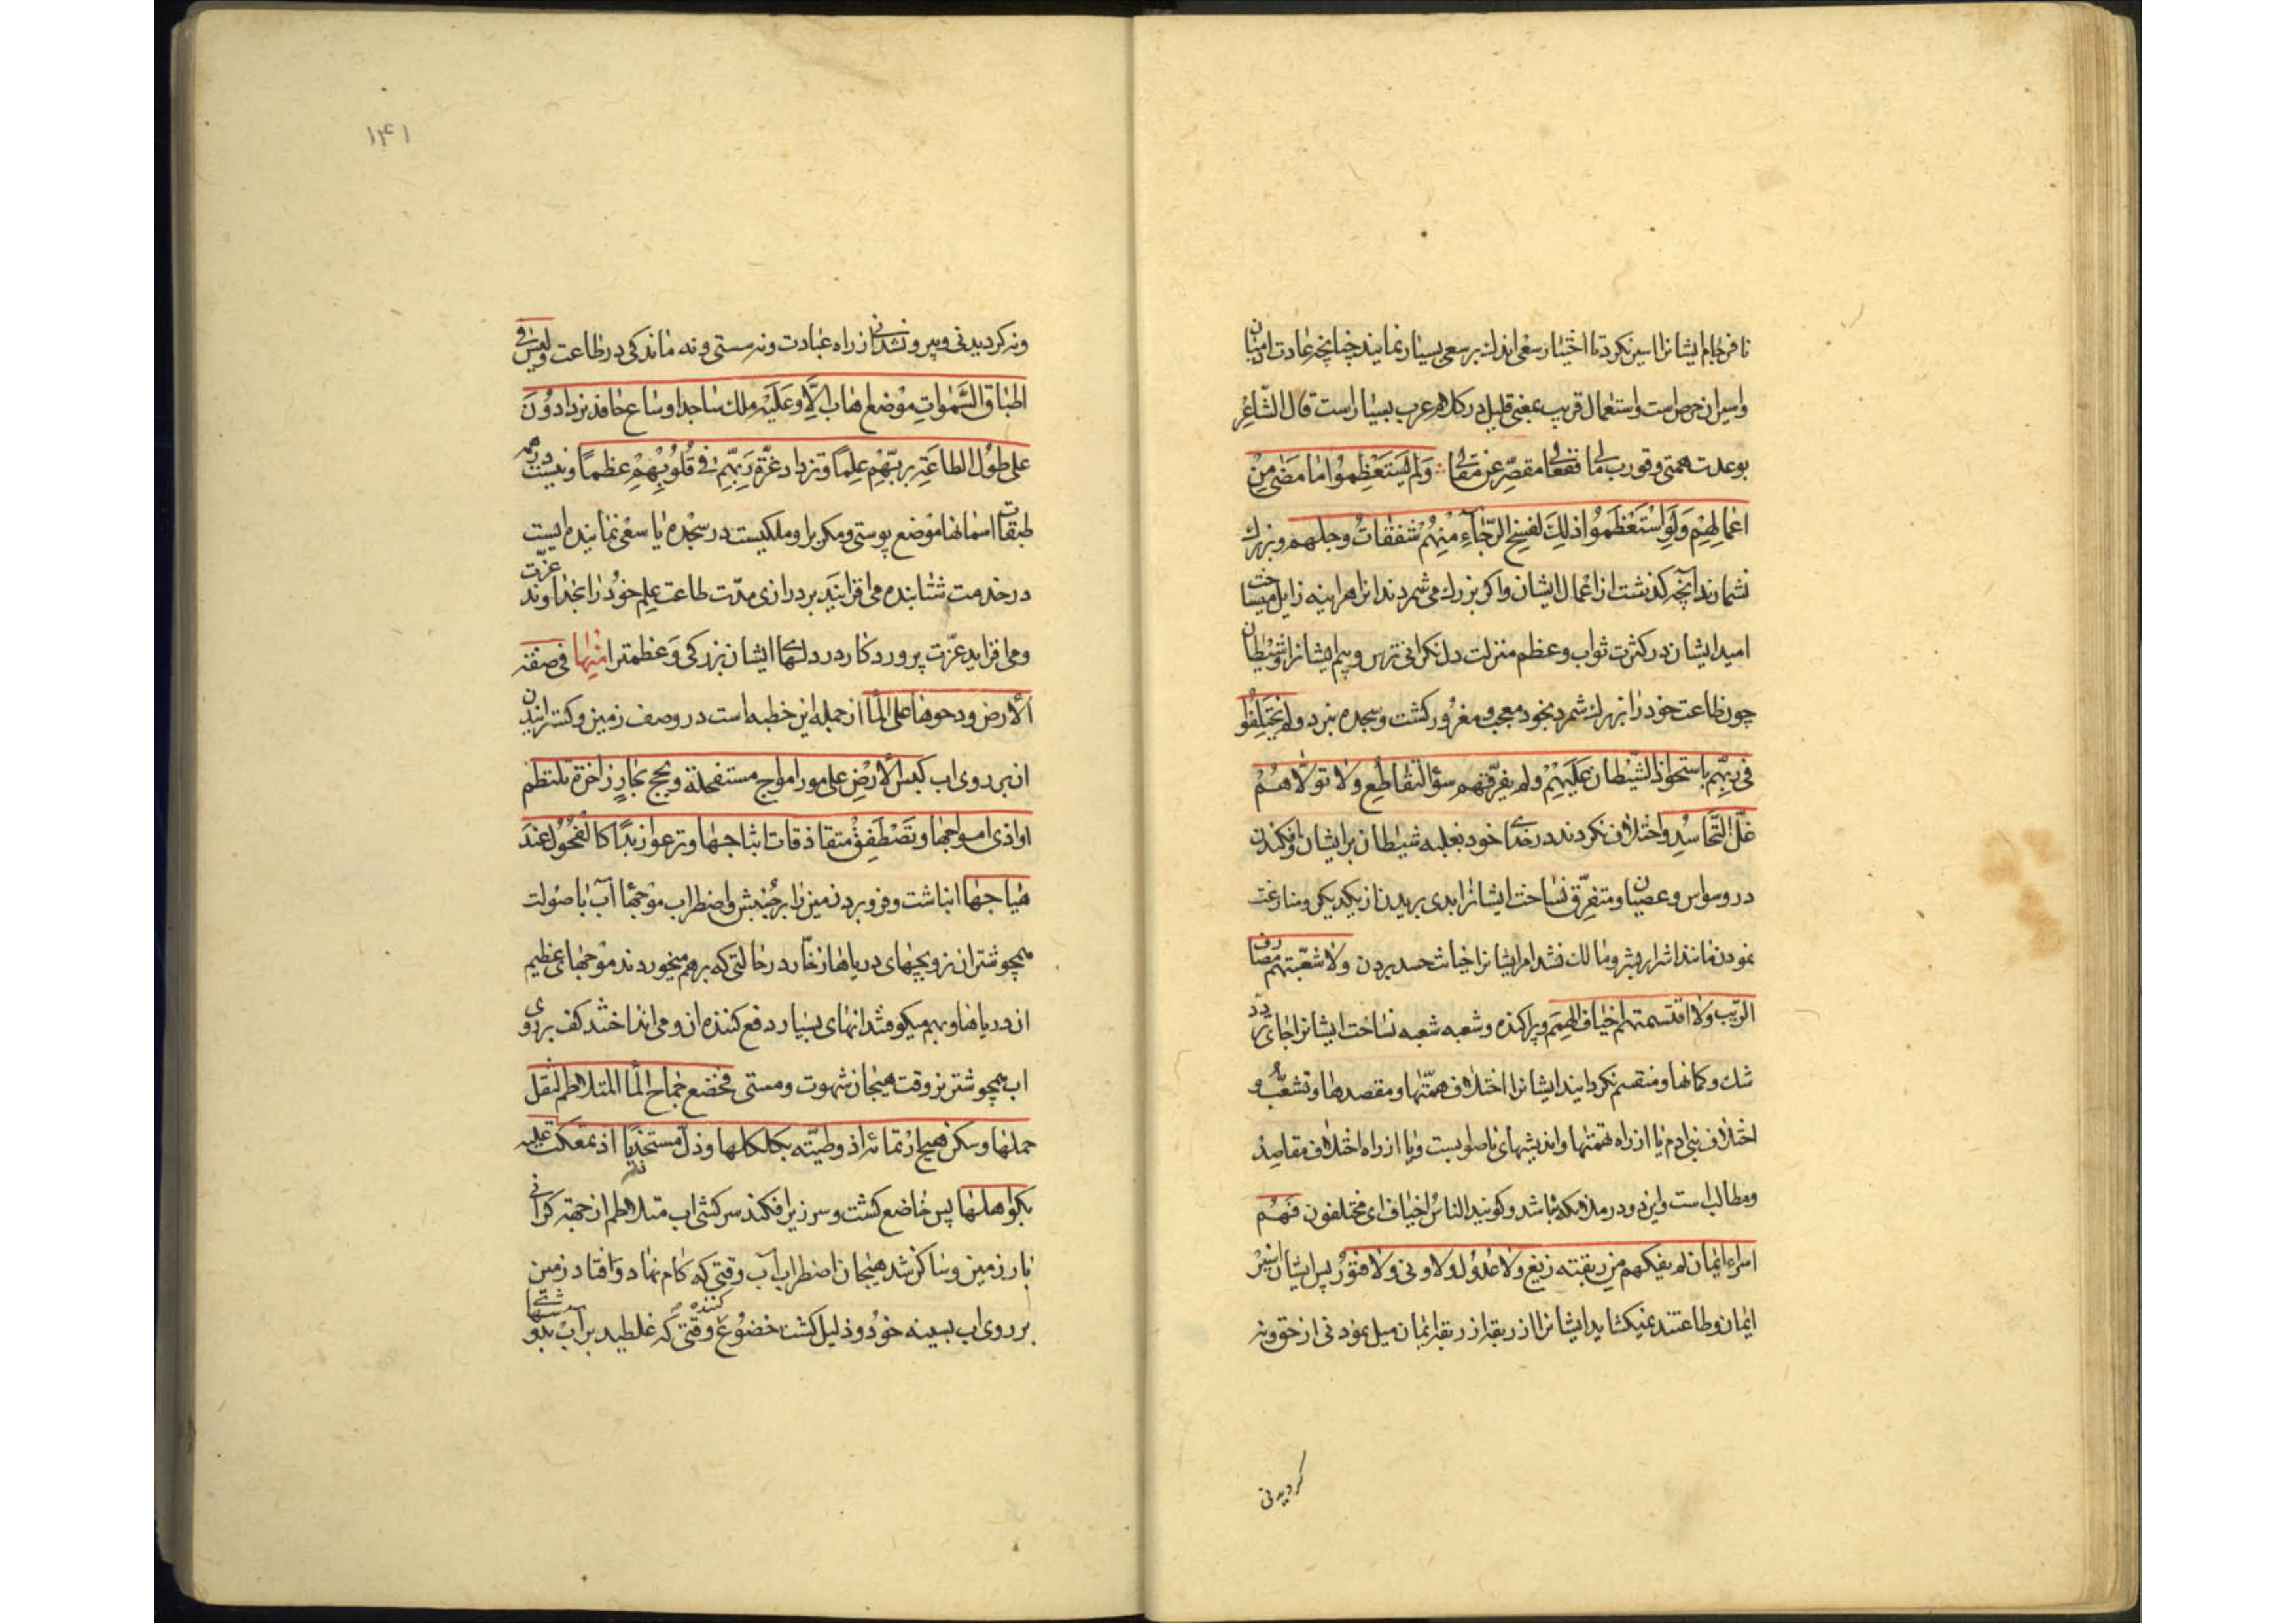 تا فرجام ایشانرا اسیر نکرد تا اختیار سعی اندك بر سعی بسیار نمایند چنانچه عادت ادمیان
و اسیران حرص است و استعمال قریب بمعنی قلیل در کلام عرب بسیار است قال الشاعر
ولم یستعظموا ما مضی من
اعمالهم ولو استعظموا ذلك لفسخ الرجاء منهم شفقات وجلهم و بزرك
نشمارند آنچه کذشت از اعمال ایشان و اکر بزرك می شمردند انرا هراینه زایل میساخت
امید ایشان در کثرت ثواب و عظم منزلت دل نکرانی ترس و بیم ایشانرا و شیطان
چون طاعت خود را بزرك شمرد بخود معجب و مغرور کشت و سجده نبرد ولم یختلفوا
فی ربهم باستحواذ الشیطان علیهم ولم یفرقهم سوء التقاطع ولا تولاهم
غل التحاسد و اختلاف نکردند در خدای خود بغلبه شیطان بر ایشان و افکندن
در وسواس و عصیان و متفرق نساخت ایشانرا بدی بریدن از یکدیکر و منازعت
نمودن مانند اشرار بشر و مالك نشد مر ایشانرا خیانت حسد بردن ولا شعبتهم مصارف
الریب ولا اقتسمتهم اخیاف الهمم و پراکنده و شعبه شعبه نساخت ایشانرا جاهای تردد
شك و کمانها و منقسم نکردانید ایشانرا اختلاف همتها و مقصدها و تشعب و
اختلاف بنی ادم یا از راه تهمتها و اندیشهای ناصواب است و یا از راه اختلاف مقاصد
و مطالب است و این دو در ملائکه نباشد و کویند الناس اخیاف ای مختلفون فهم
اسراء ایمان لم یفکهم من ربقته زیغ ولا عدول ولا ونی ولا فتور پس ایشان اسیر
ایمان و طاعتند نمیکشاید ایشانرا از ربقه از ربقه ایمان میل نمودنی از حق و نه
کردیدنی
۱۴۱
و نه کردیدنی و بیرون شدنی از راه عبادت و نه سستی و نه ماندکی در طاعت ولیس فی
اطباق السموات موضع اهاب الا وعلیه ملك ساجد او ساع حافد یزدادون
علی طول الطاعة بربهم علما وتزداد عزة ربهم فی قلوبهم عظما و نیست در همه
طبقات اسمانها موضع پوستی و مکر برا و ملکیست در سجده یا سعی نماینده ایست
در خدمت شتابنده می افزایند بر درازی مدت طاعت علم خود را بخداوند عزت
و می افزاید عزت پروردکار در دلهای ایشان بزرکی و عظمترا منها فی صفة
الارض ودحوها علی الماء از جمله این خطبه است در وصف زمین و کسترانیدن
ان بر روی اب کبس الارض علی مور امواج مستفحلة ولجج بحار زاخرة تلتطم
اواذی امواجها وتصطفق متقاذفات اثباجها وترغو زبدا کالفحول عند
هیاجها انباشت و فرو برد زمین را بر جنبش و اضطراب موجهای آب با صولت
همچو شتران نر و لجهای دریاهای زخار در حالتی که برهم میخوردند موجهای عظیم
ان دریاها و بهم میکوفتند انهای بسیار دفع کننده ان و می انداختند کف بر روی
اب همچو شتر نر وقت هیجان شهوت و مستی فخضع جماح الماء المتلاطم لثقل
حملها وسکن هیج ارتمائه اذ وطئته بکلکلها وذل مستخذیا اذ تمعکت علیه
بکواهلها پس خاضع کشت و سرزیر افکند سرکشی اب متلاطم از جهته کرانی
بار زمین و ساکن شد هیجان اضطراب آب وقتی که کام نهاد و افتاد زمین
بر روی اب بسینه خود و ذلیل کشت خضوع کننده وقتی که غلطید بر آب بدوشهای